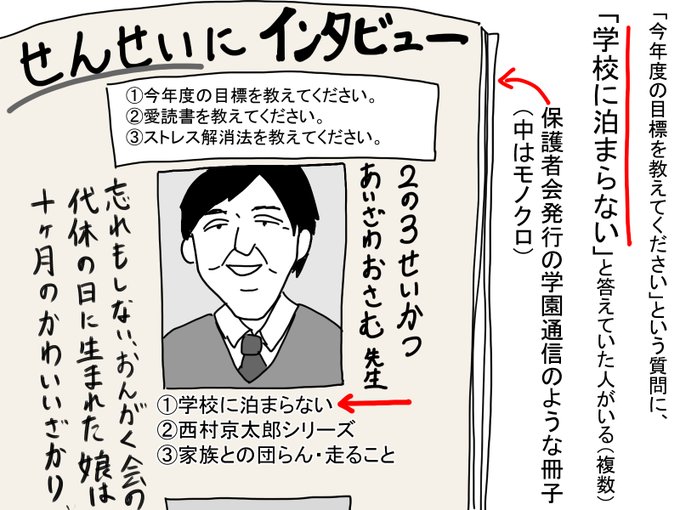 「今年度の目標を教えてください」という質問に、
「学校に泊まらない」と答えていた人がいる(複数)
保護者会発行の学園通信のような冊子
(中はモノクロ)
せんせいに インタビュー
①今年度の目標を教えてください。
②愛読書を教えてください。
③ストレス解消法を教えてください。
2の3せいかつ
あいざわおさむ 先生
①学校に泊まらない
②西村京太郎シリーズ
③家族との団らん・走ること
忘れもしない、おんがく会の
代休の日に生まれた娘は
十ヶ月のかわいいざかり